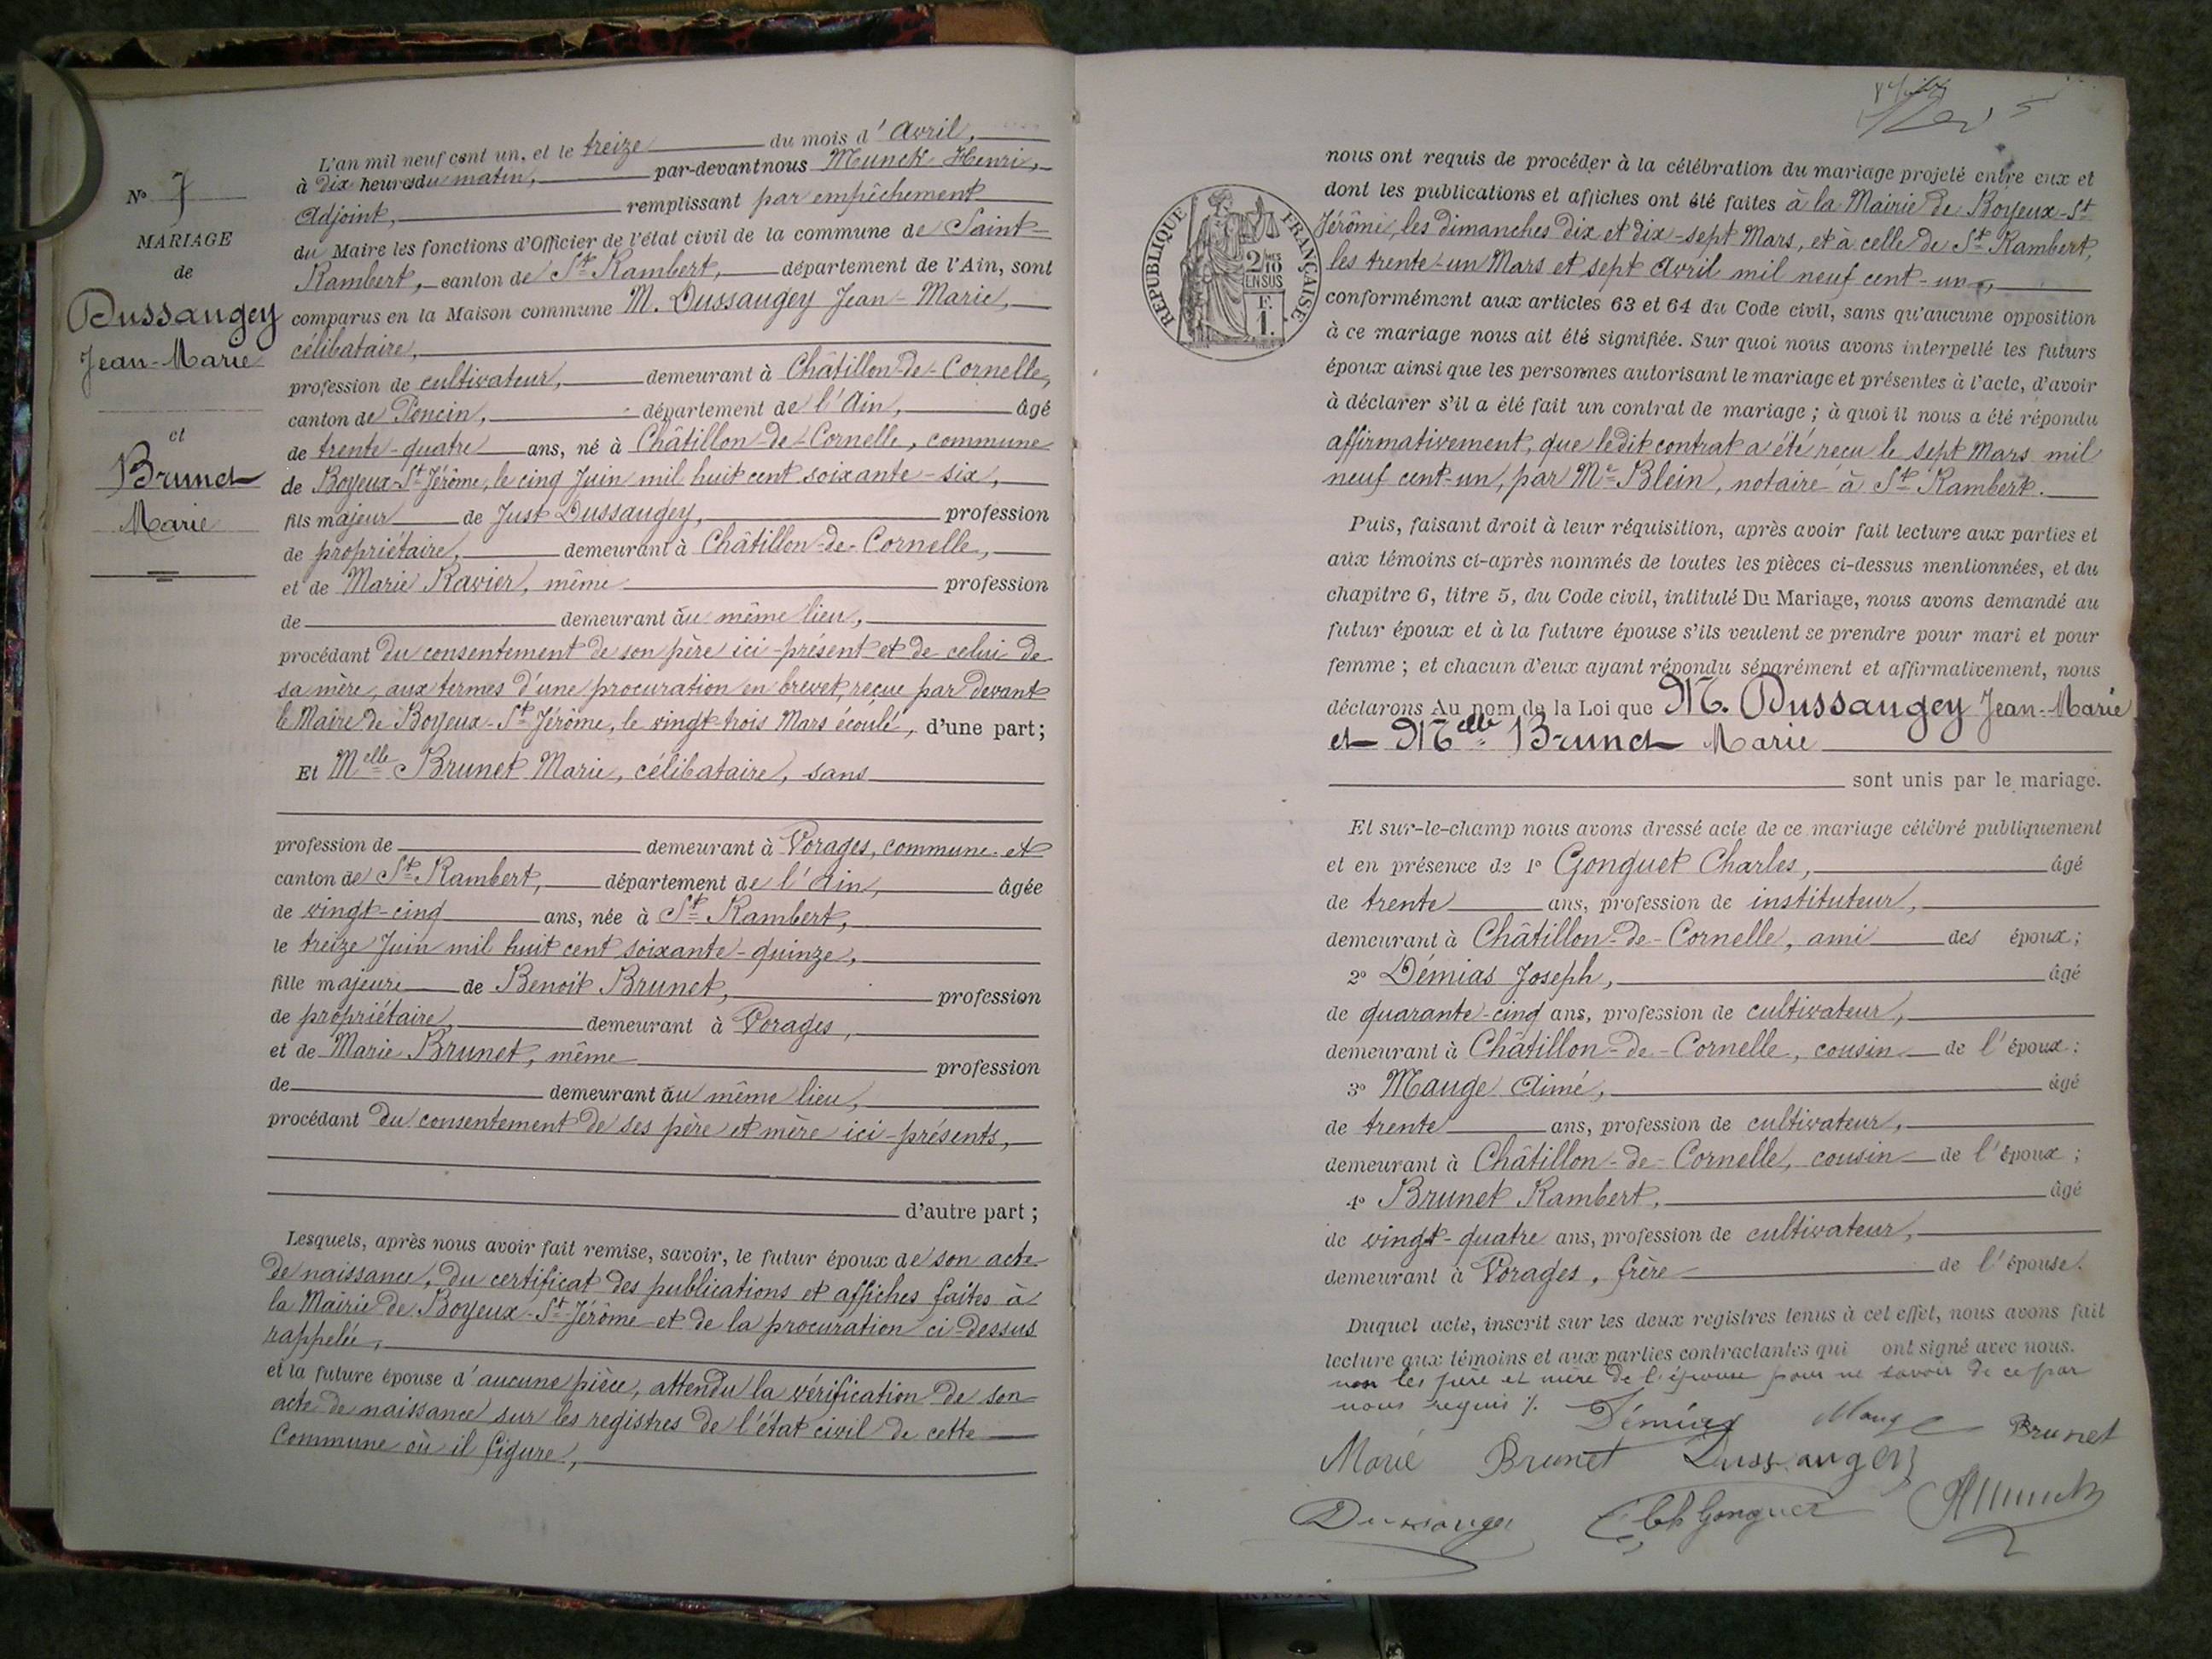 N° 7
MARIAGE
de
Dussaugey
Jean-Marie
et
Brunet
Marie
L'an mil neuf cent un, et le treize du mois d'Avril,
à dix heures du matin, par-devant nous Munck Henri,
Adjoint, remplissant par empêchement
du Maire les fonctions d'Officier de l'état civil de la commune de Saint-
Rambert, canton de St Rambert, département de l'Ain, sont
comparus en la Maison commune M. Dussaugey Jean-Marie,
célibataire,
profession de cultivateur, demeurant à Châtillon-de-Cornelle,
canton de Poncin, département de l'Ain, âgé
de trente-quatre ans, né à Châtillon-de-Cornelle, commune
de Boyeux-St Jérôme, le cinq Juin mil huit cent soixante-six,
fils majeur de Just Dussaugey, profession
de propriétaire, demeurant à Châtillon-de-Cornelle,
et de Marie Ravier, même profession
de demeurant au même lieu,
procédant du consentement de son père ici-présent et de celui de
sa mère, aux termes d'une procuration en brevet, reçue par devant
le Maire de Boyeux-St Jérôme, le vingt-trois Mars écoulé, d'une part;
Et Melle Brunet Marie, célibataire, sans
profession de demeurant à Vorages, commune et
canton de St Rambert, département de l'Ain, âgée
de vingt-cinq ans, née à St Rambert,
le treize Juin mil huit cent soixante-quinze,
fille majeure de Benoit Brunet, profession
de propriétaire, demeurant à Vorages,
et de Marie Brunet, même profession
de demeurant au même lieu,
procédant du consentement de ses père et mère ici-présents,
d'autre part;
Lesquels, après nous avoir fait remise, savoir, le futur époux de son acte
de naissance, du certificat des publications et affiches faites à
la Mairie de Boyeux-St-Jérôme et de la procuration ci-dessus
rappelée,
et la future épouse d'aucune pièce, attendu la vérification de son
acte de naissance sur les registres de l'état civil de cette
Commune où il figure,
RÉPUBLIQUE FRANÇAISE
2/10MES
EN SUS
F.
1.
nous ont requis de procéder à la célébration du mariage projeté entre eux et
dont les publications et affiches ont été faites à la Mairie de Boyeux-St
Jérôme, les dimanches dix et dix-sept Mars, et à celle de St Rambert,
les trente-un Mars et sept Avril mil neuf cent-un,
conformément aux articles 63 et 64 du Code civil, sans qu'aucune opposition
à ce mariage nous ait été signifiée. Sur quoi nous avons interpellé les futurs
époux ainsi que les personnes autorisant le mariage et présentes à l'acte, d'avoir
à déclarer s'il a été fait un contrat de mariage; à quoi il nous a été répondu
affirmativement, que ledit contrat a été reçu le sept Mars mil
neuf cent-un, par Me Blein, notaire à St Rambert.
Puis, faisant droit à leur réquisition, après avoir fait lecture aux parties et
aux témoins ci-après nommés de toutes les pièces ci-dessus mentionnées, et du
chapitre 6, titre 5, du Code civil, intitulé Du Mariage, nous avons demandé au
futur époux et à la future épouse s'ils veulent se prendre pour mari et pour
femme; et chacun d'eux ayant répondu séparément et affirmativement, nous
déclarons Au nom de la Loi que M. Dussaugey Jean-Marie
et Melle Brunet Marie
sont unis par le mariage.
Et sur-le-champ nous avons dressé acte de ce mariage célébré publiquement
et en présence de 1° Gonguet Charles, âgé
de trente ans, profession de instituteur,
demeurant à Châtillon-de-Cornelle, ami des époux;
2° Démias Joseph, âgé
de quarante-cinq ans, profession de cultivateur,
demeurant à Châtillon-de-Cornelle, cousin de l'époux;
3° Mauge Aimé, âgé
de trente ans, profession de cultivateur,
demeurant à Châtillon-de-Cornelle, cousin de l'époux;
4° Brunet Rambert, âgé
de vingt-quatre ans, profession de cultivateur,
demeurant à Vorages, frère de l'épouse.
Duquel acte, inscrit sur les deux registres tenus à cet effet, nous avons fait
lecture aux témoins et aux parties contractantes qui ont signé avec nous.
non les père et mère de l'épouse pour ne savoir de ce par
nous requis /.
Démias Mauge Brunet
Marie Brunet Dussaugey
Dussauge Ch Gonguet HMunck